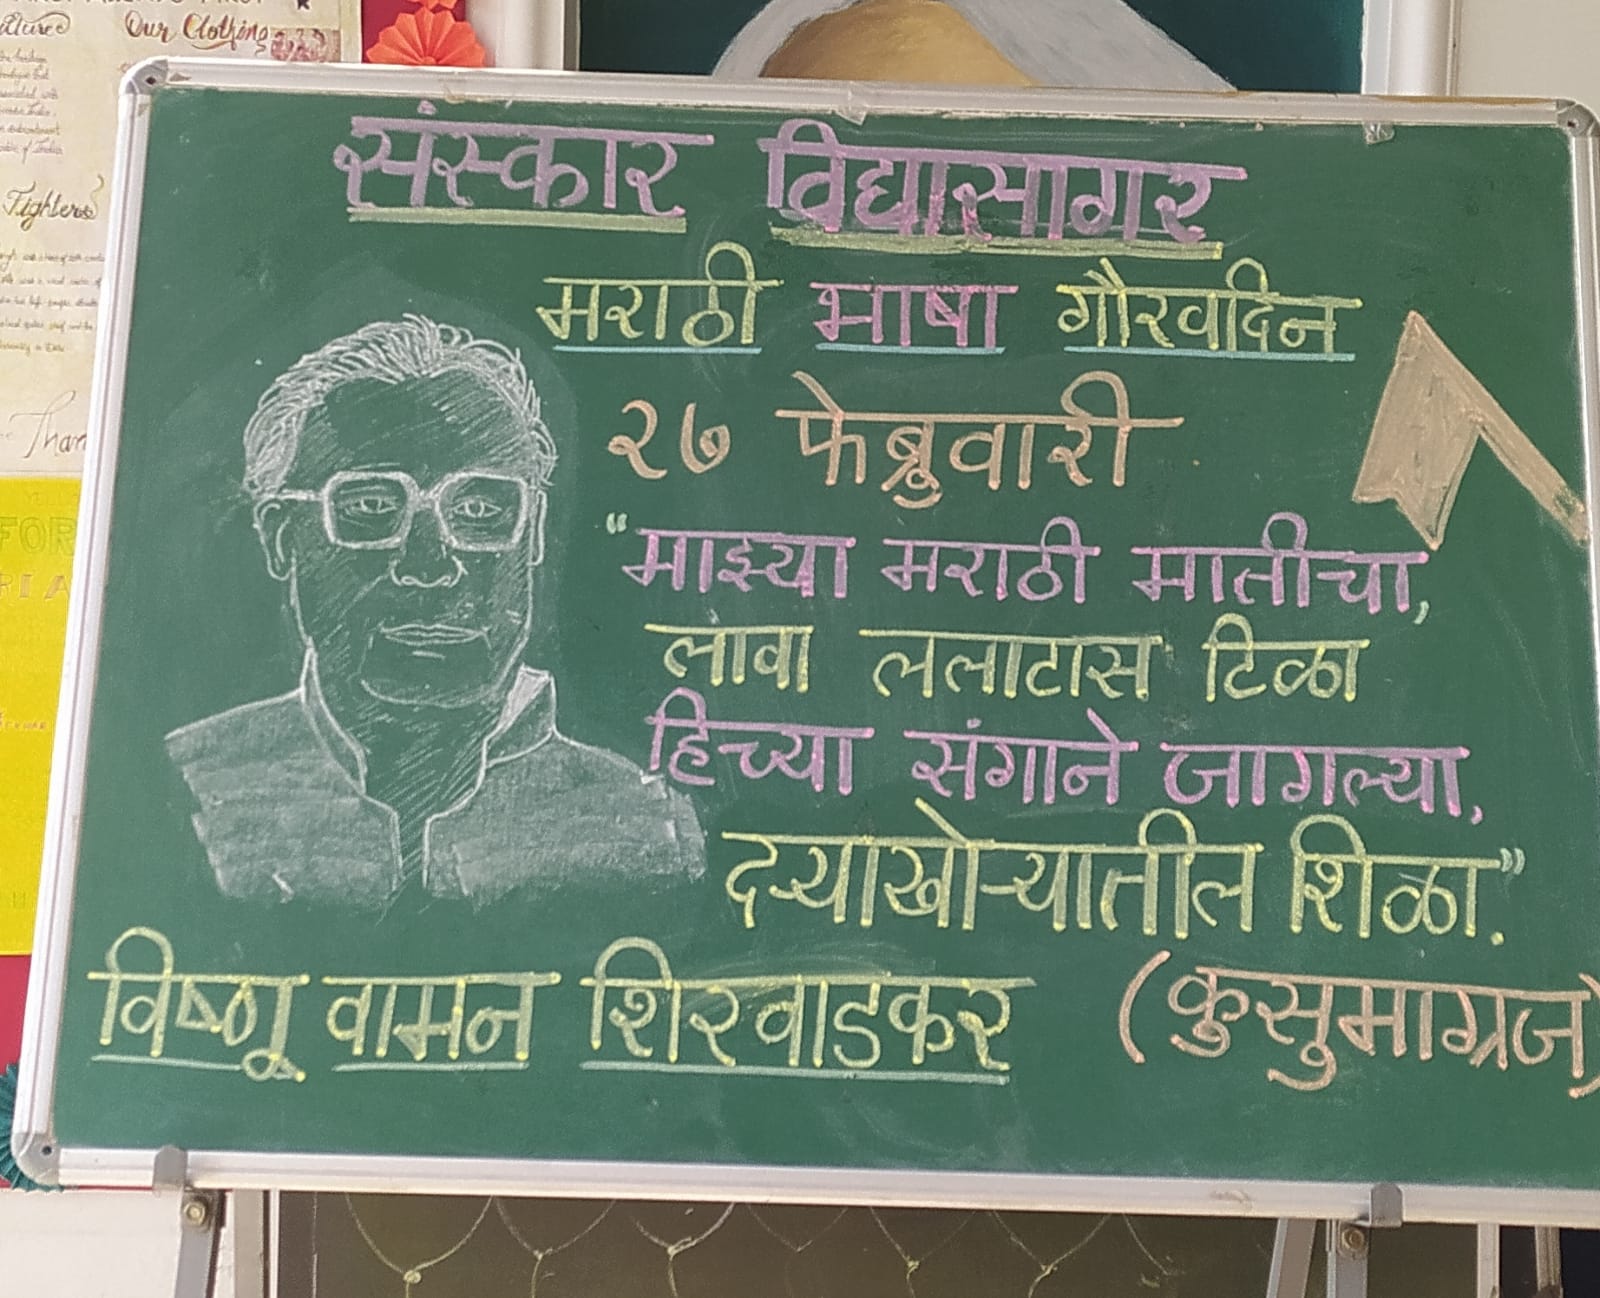 Our Clothing
Fighters
संस्कार विद्यासागर
मराठी भाषा गौरवदिन
२७ फेब्रुवारी
“माझ्या मराठी मातीचा,
लावा ललाटास टिळा
हिच्या संगाने जागल्या,
दऱ्याखोऱ्यातील शिळा.”
विष्णू वामन शिरवाडकर (कुसुमाग्रज)